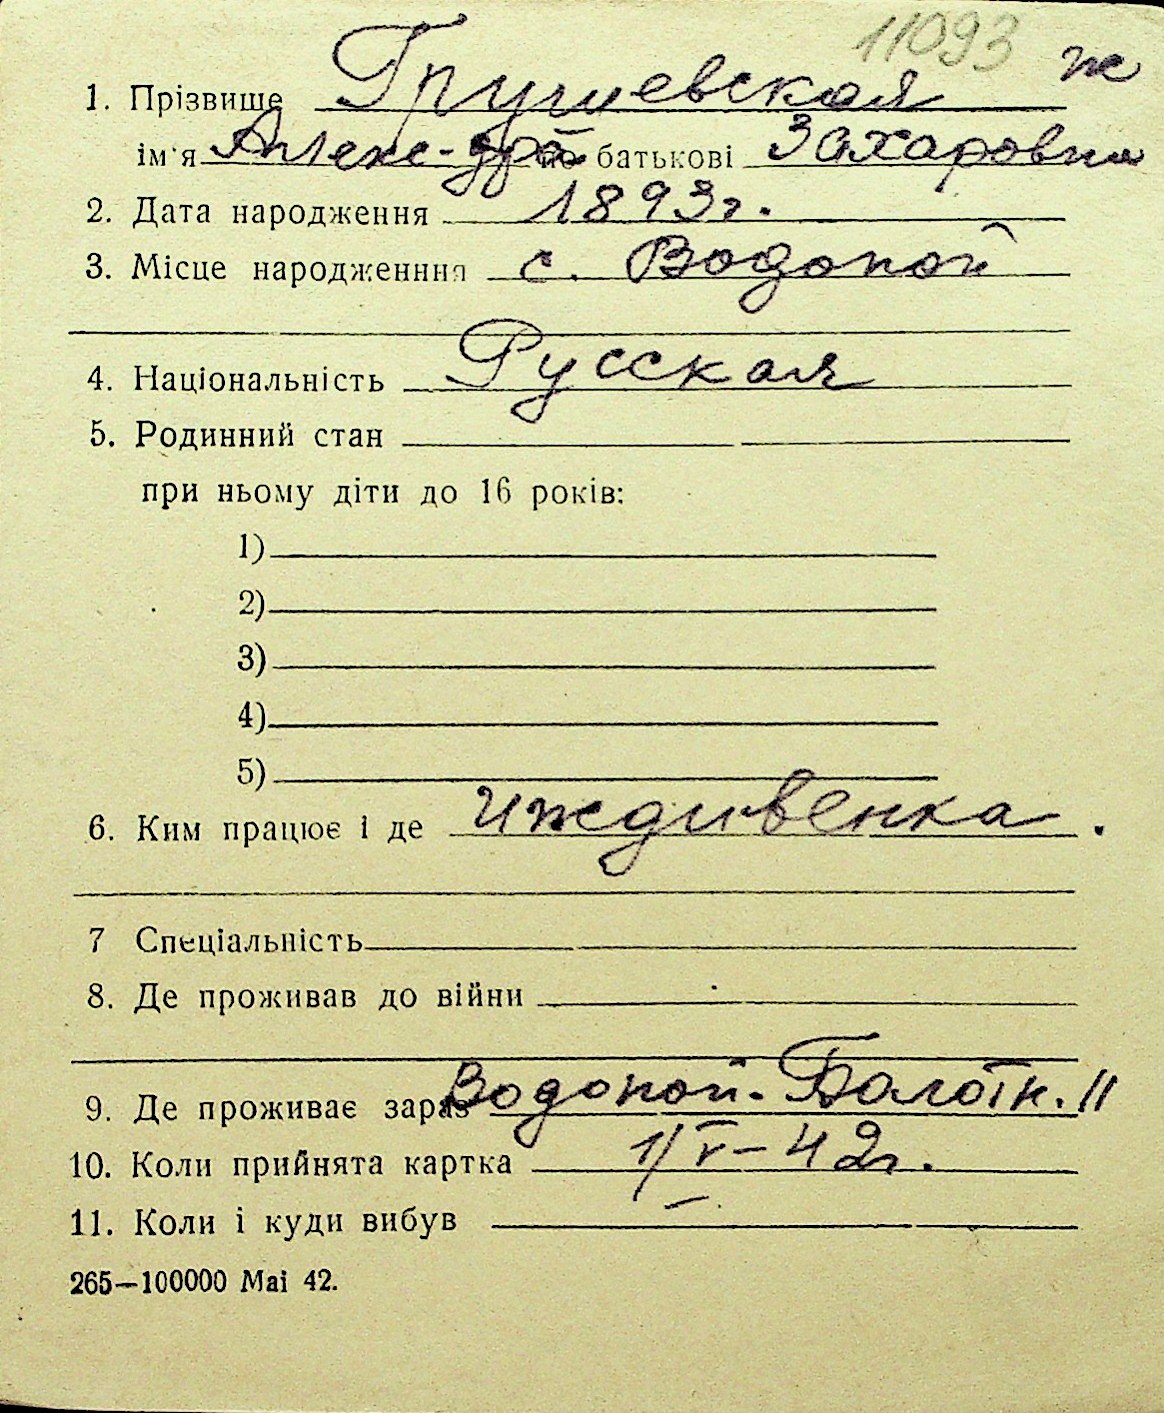 11093 ж
1. Прізвище Грушевская
ім'я Алекс-дра по батькові Захаровна
2. Дата народження 1893г.
3. Місце народженння с. Водопой
4. Національність Русская
5. Родинний стан
при ньому діти до 16 років:
1)
2)
3)
4)
5)
6. Ким працює і де иждивенка.
7 Спеціальність
8. Де проживав до війни
9. Де проживає зараз Водопой-Балотн. 11
10. Коли прийнята картка 1/V-42г.
11. Коли і куди вибув —
265—100000 Mai 42.